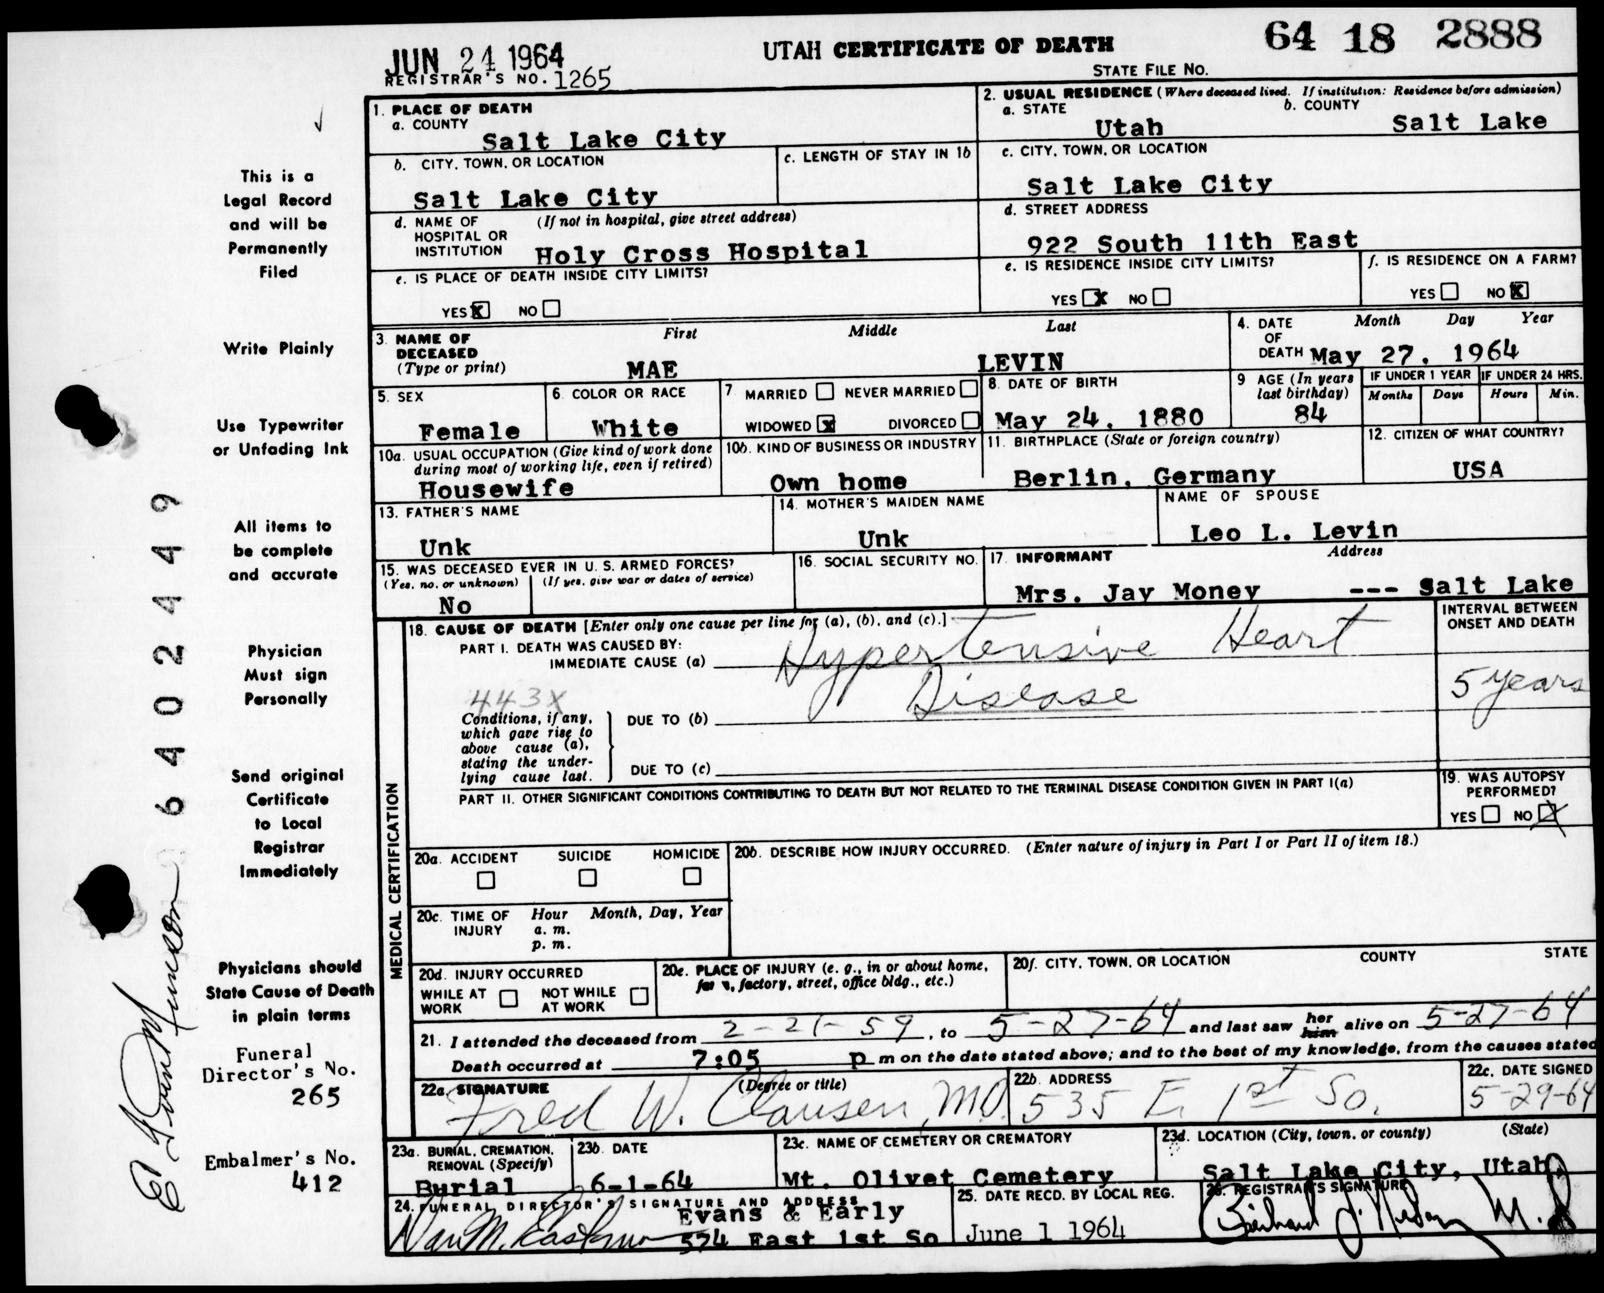 JUN 24 1964
UTAH CERTIFICATE OF DEATH
64 18 2888
REGISTRAR'S NO. 1265
STATE FILE NO.
1. PLACE OF DEATH
a. COUNTY
Salt Lake City
2. USUAL RESIDENCE (Where deceased lived. If institution: Residence before admission)
a. STATE
Utah
b. COUNTY
Salt Lake
b. CITY, TOWN, OR LOCATION
Salt Lake City
c. LENGTH OF STAY IN 1b
c. CITY, TOWN, OR LOCATION
Salt Lake City
d. NAME OF HOSPITAL OR INSTITUTION
(If not in hospital, give street address)
Holy Cross Hospital
d. STREET ADDRESS
922 South 11th East
e. IS PLACE OF DEATH INSIDE CITY LIMITS?
YES X NO
e. IS RESIDENCE INSIDE CITY LIMITS?
YES X NO
f. IS RESIDENCE ON A FARM?
YES NO X
3. NAME OF DECEASED
(Type or print)
First Middle Last
MAE LEVIN
4. DATE OF DEATH
Month Day Year
May 27, 1964
5. SEX
Female
6. COLOR OR RACE
White
7 MARRIED NEVER MARRIED
WIDOWED X DIVORCED
8. DATE OF BIRTH
May 24, 1880
9 AGE (In years last birthday)
84
IF UNDER 1 YEAR
Months Days
IF UNDER 24 HRS.
Hours Min.
10a. USUAL OCCUPATION (Give kind of work done
during most of working life, even if retired)
Housewife
10b. KIND OF BUSINESS OR INDUSTRY
Own home
11. BIRTHPLACE (State or foreign country)
Berlin, Germany
12. CITIZEN OF WHAT COUNTRY?
USA
13. FATHER'S NAME
Unk
14. MOTHER'S MAIDEN NAME
Unk
NAME OF SPOUSE
Leo L. Levin
15. WAS DECEASED EVER IN U. S. ARMED FORCES?
(Yes, no, or unknown) (If yes, give war or dates of service)
No
16. SOCIAL SECURITY NO.
17. INFORMANT Address
Mrs. Jay Money --- Salt Lake
MEDICAL CERTIFICATION
18. CAUSE OF DEATH [Enter only one cause per line for (a), (b), and (c).]
INTERVAL BETWEEN ONSET AND DEATH
PART I. DEATH WAS CAUSED BY:
IMMEDIATE CAUSE (a) Hypertensive Heart
Disease
5 years
443X
Conditions, if any,
which gave rise to
above cause (a),
stating the under-
lying cause last.
DUE TO (b)
DUE TO (c)
PART II. OTHER SIGNIFICANT CONDITIONS CONTRIBUTING TO DEATH BUT NOT RELATED TO THE TERMINAL DISEASE CONDITION GIVEN IN PART I(a)
19. WAS AUTOPSY PERFORMED?
YES NO X
20a. ACCIDENT SUICIDE HOMICIDE
20b. DESCRIBE HOW INJURY OCCURRED. (Enter nature of injury in Part I or Part II of item 18.)
20c. TIME OF INJURY
Hour Month, Day, Year
a. m.
p. m.
20d. INJURY OCCURRED
WHILE AT WORK NOT WHILE AT WORK
20e. PLACE OF INJURY (e. g., in or about home,
factory, street, office bldg., etc.)
20f. CITY, TOWN, OR LOCATION COUNTY STATE
21. I attended the deceased from 2-21-59, to 5-27-64 and last saw her him alive on 5-27-64
Death occurred at 7:05 p m on the date stated above; and to the best of my knowledge, from the causes stated
22a. SIGNATURE (Degree or title)
Fred W. Clausen, M.D.
22b. ADDRESS
535 E. 1st So.
22c. DATE SIGNED
5-29-64
23a. BURIAL, CREMATION, REMOVAL (Specify)
Burial
23b. DATE
6-1-64
23c. NAME OF CEMETERY OR CREMATORY
Mt. Olivet Cemetery
23d. LOCATION (City, town, or county) (State)
Salt Lake City, Utah
24. FUNERAL DIRECTOR'S SIGNATURE AND ADDRESS
Evans & Early
574 East 1st So
25. DATE RECD. BY LOCAL REG.
June 1 1964
26. REGISTRAR'S SIGNATURE
This is a
Legal Record
and will be
Permanently
Filed
Write Plainly
Use Typewriter
or Unfading Ink
All items to
be complete
and accurate
Physician
Must sign
Personally
Send original
Certificate
to Local
Registrar
Immediately
Physicians should
State Cause of Death
in plain terms
Funeral
Director's No.
265
Embalmer's No.
412
6402449